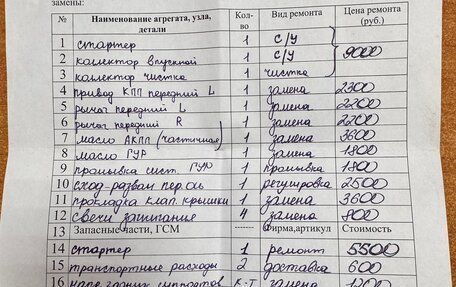 замены:
№ Наименование агрегата, узла, детали Кол-во Вид ремонта Цена ремонта (руб.)
1 стартер 1 с/у
2 коллектор впускной 1 с/у 9000
3 коллектор чистка 1 чистка
4 привод КПП передний L 1 замена 2300
5 рычаг передний L 1 замена 2200
6 рычаг передний R 1 замена 2200
7 масло АКПП (частичная) 1 замена 3600
8 масло ГУР 1 замена 1800
9 промывка сист. ГУР 1 промывка 1800
10 сход-развал пер.ось 1 регулировка 2500
11 прокладка клап. крышки 1 замена 3600
12 свечи зажигания 4 замена 800
13 Запасные части, ГСМ ------ Фирма,артикул Стоимость
14 стартер 1 ремонт 5500
15 транспортные расходы 2 доставка 600
16 задних к-т замена 1200